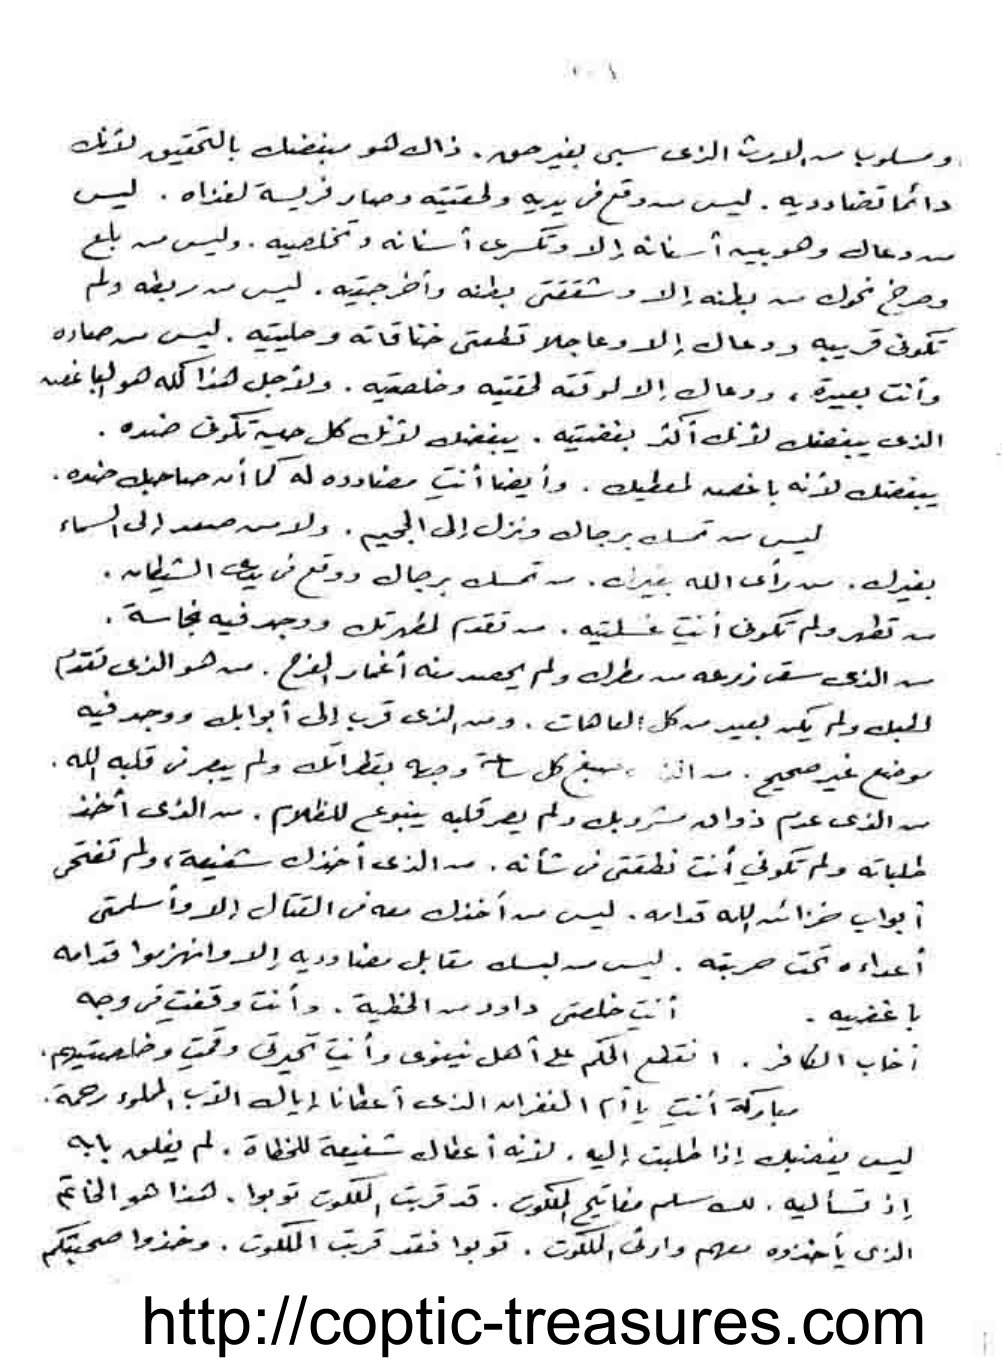 ومسلوب من الارث الذى سبى بغير حق . ذاك هو مبغضك بالتحقيق لأنك
دائما تضاددیه . ليس من وقع فى يديه ولحقتيه وصار فريسة لغذاه . ليس
من دعاك وهو بين أسنانه إلا وتكسرى أسنانه وتخلصيه . وليس من بلع
وصرخ نحوك من بطنه إلا وشققتى بطنه وأخرجتيه . ليس من ربطه ولم
تكونى قريبه ودعاك إلا وعاجلا قطعتى خناقاته وحليتيه . ليس من صاده
وأنت بعيدة ، ودعاك إلا لوقته لحقتيه وخلصتيه . ولأجل هذا كله هو الباغض
الذى يبغضك لأنك أكثر بغضتيه . يبغضك لأنك كل حين تكونى ضده .
يبغضك لأنه باغض لمعطيك . وأيضا أنتِ مضاددة له كما أن صاحبك ضده .
ليس من تمسك برجاك ونزل إلى الجحيم . ولا من صعد إلى السماء
بغيرك . من رأى الله بغيرك . من تمسك برجاك ووقع فى يدى الشيطان .
من تطهر ولم تكونى أنتِ غسلتيه . من تقدم لطهرتك ووجد فيه نجاسة .
من الذى سقى زرعه من مطرك ولم يحصد منه أغمار الفرح . من هو الذى تقدم
إليك ولم يكن بعيد من كل العاهات . ومن الذى قرب إلى أبوابك ووجد فيه
موضع غير صحيح . من صبغ كل ساعة وجهه بقطراتك ولم يبصر فى قلبه الله .
من الذى عدم ذواق مشروبك ولم يصر قلبه ينبوع للظلام . من الذى أخذ
طلباته ولم تكوني أنت نطقتى فى شأنه . من الذى أخذك شفيعة ، ولم تفتحى
أبواب خزائن الله قدامه . ليس من أخذك معه فى القتال إلا وأسلمتى
أعداءه تحت حربته . ليس من لبسك مقابل مضادديه إلا وانهزموا قدامه
باغضيه . أنتِ خلصتى داود من الخطية . وأنت وقفتِ فى وجه
أخاب الكافر . انقطع الحكم على أهل نينوى وأنتِ تحيرتى وقمتِ وخلصتيهم .
مباركة أنتِ يا أم الغفران الذى أعطانا إياك الآب المملوء رحمة .
ليس يغضبك إذا طلبت إليه . لأنه أعطاك شفيعة للخطاة . لم يغلق بابه
إذ تسأليه . لك سلم مفاتيح الملكوت . قد قربت الملكوت توبوا . هذا هو الخاتم
الذى يأخذوه معهم وارثى الملكوت . توبوا فقد قربت الملكوت . وخذوا صحبتكم
http://coptic-treasures.com